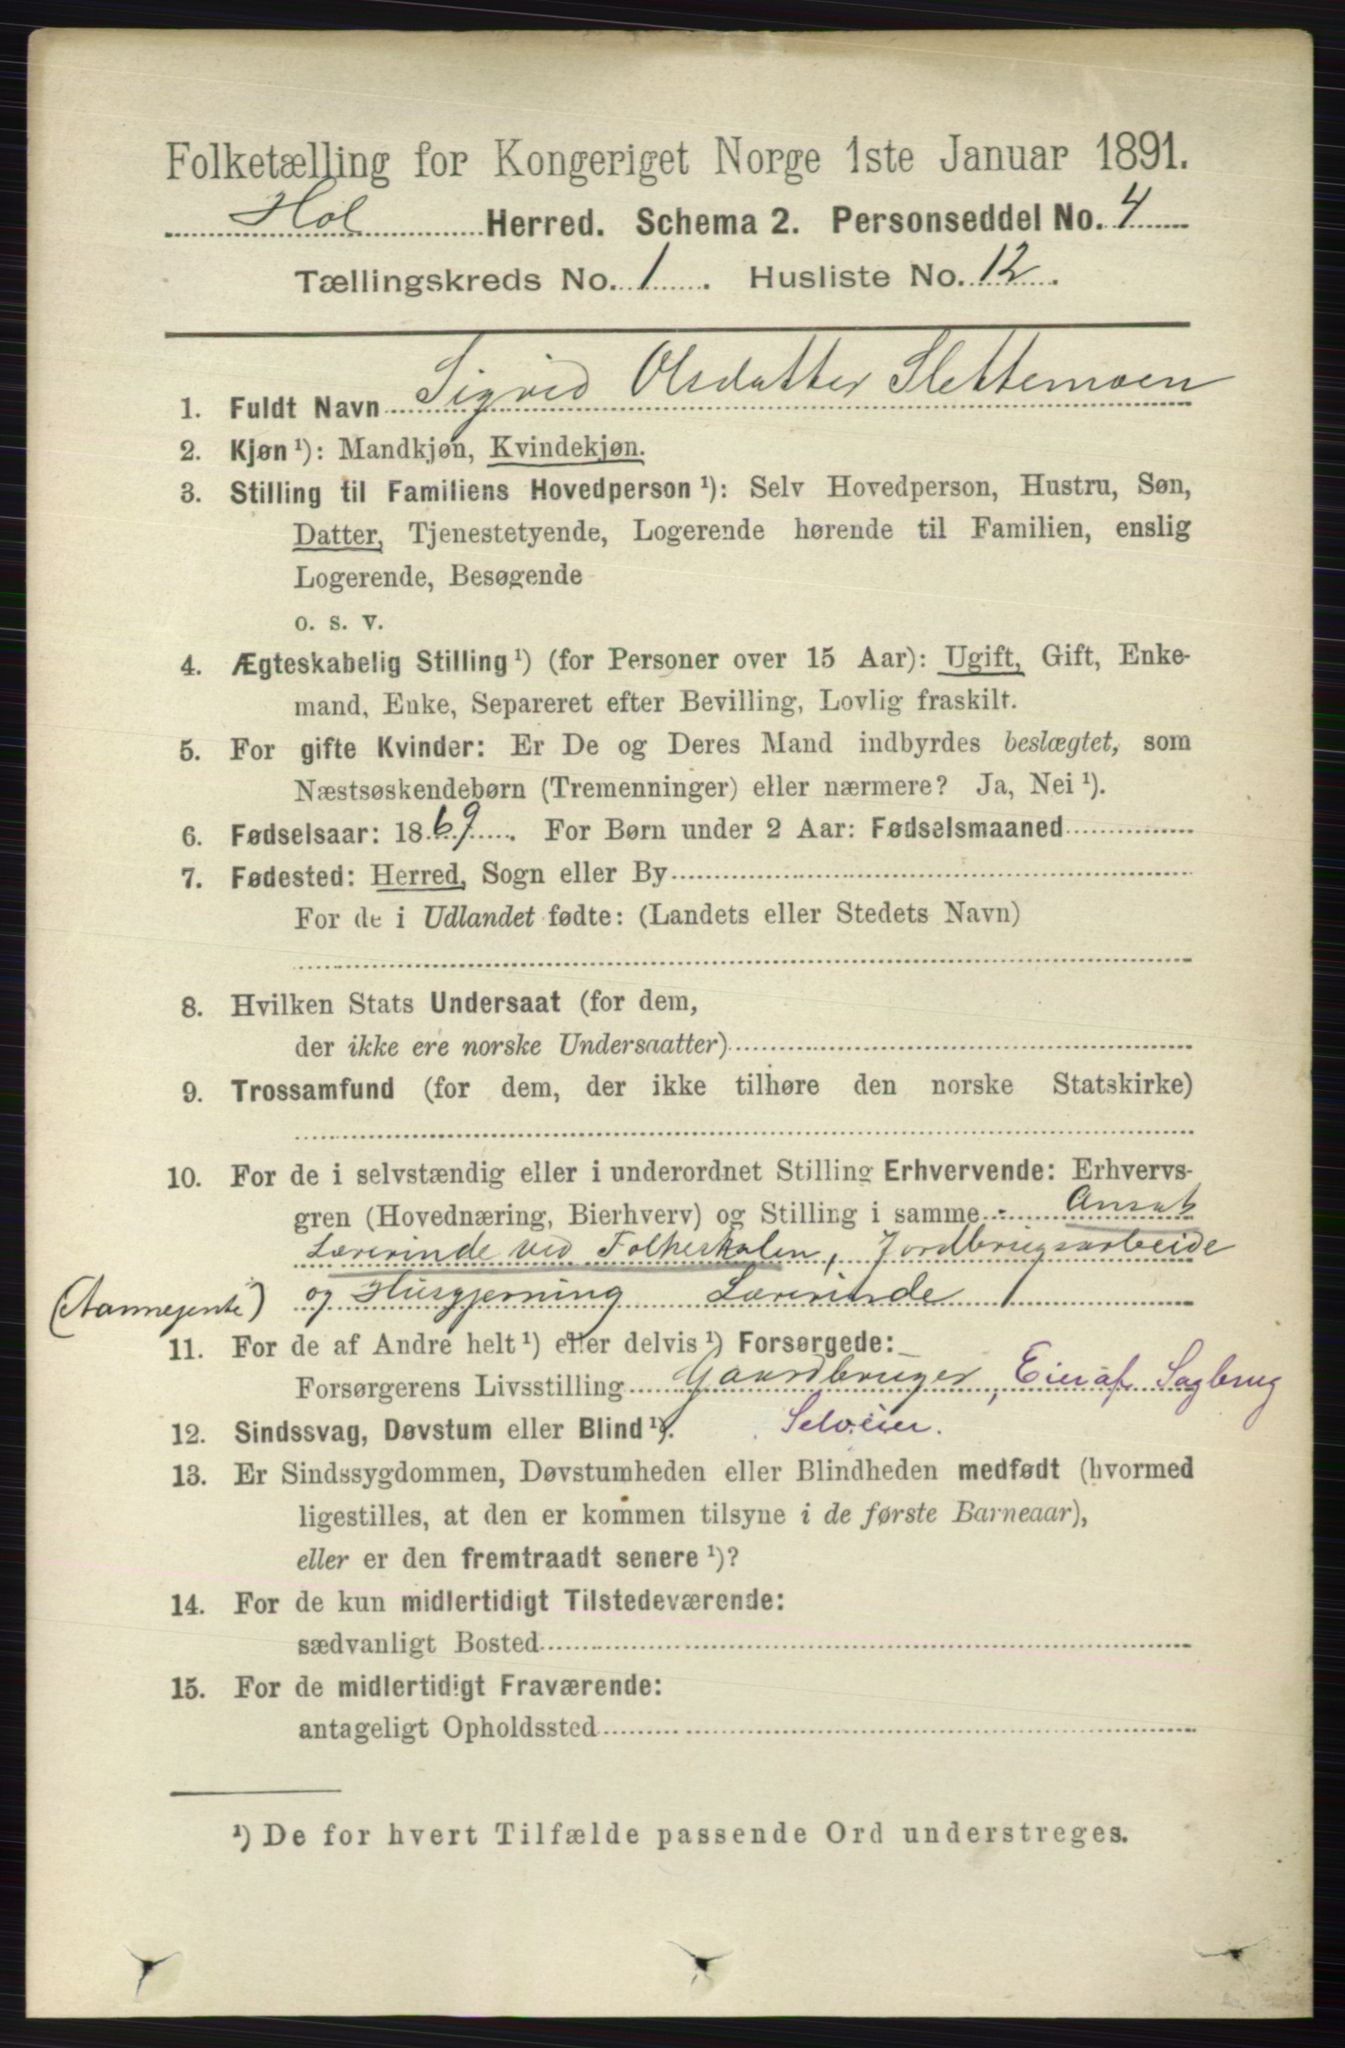 Folketælling for Kongeriget Norge 1ste Januar 1891.
Hol Herred. Schema 2. Personseddel No. 4
Tællingskreds No. 1. Husliste No. 12.
1. Fuldt Navn Sigrid Olsdatter Slettemoen
2. Kjøn ¹): Mandkjøn, Kvindekjøn.
3. Stilling til Familiens Hovedperson ¹): Selv Hovedperson, Hustru, Søn,
Datter, Tjenestetyende, Logerende hørende til Familien, enslig
Logerende, Besøgende
o. s. v.
4. Ægteskabelig Stilling ¹) (for Personer over 15 Aar): Ugift, Gift, Enke-
mand, Enke, Separeret efter Bevilling, Lovlig fraskilt.
5. For gifte Kvinder: Er De og Deres Mand indbyrdes beslægtet, som
Næstsøskendebørn (Tremenninger) eller nærmere? Ja, Nei ¹).
6. Fødselsaar: 1869. For Børn under 2 Aar: Fødselsmaaned
7. Fødested: Herred, Sogn eller By
For de i Udlandet fødte: (Landets eller Stedets Navn)
8. Hvilken Stats Undersaat (for dem,
der ikke ere norske Undersaatter)
9. Trossamfund (for dem, der ikke tilhøre den norske Statskirke)
10. For de i selvstændig eller i underordnet Stilling Erhvervende: Erhvervs-
gren (Hovednæring, Bierhverv) og Stilling i samme - Ansat
Lærerinde ved Folkeskolen, Jordbrugsarbeide
og Husgjerning Lærerinde
11. For de af Andre helt ¹) eller delvis ¹) Forsørgede:
Forsørgerens Livsstilling Gaardbruger, Eier af Sagbrug
12. Sindssvag, Døvstum eller Blind ¹). Selveier.
13. Er Sindssygdommen, Døvstumheden eller Blindheden medfødt (hvormed
ligestilles, at den er kommen tilsyne i de første Barneaar),
eller er den fremtraadt senere ¹)?
14. For de kun midlertidigt Tilstedeværende:
sædvanligt Bosted
15. For de midlertidigt Fraværende:
antageligt Opholdssted
¹) De for hvert Tilfælde passende Ord understreges.